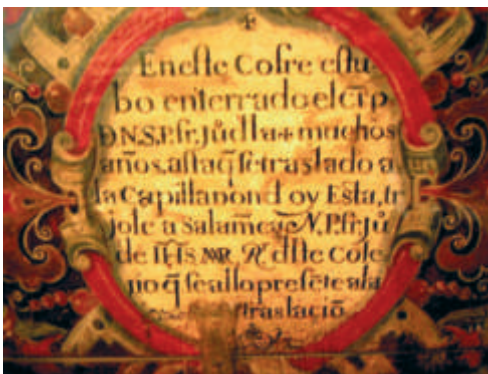 En este Cofre estu
bo enterrado el c̄rp
D N.S.P. fr. Jū dla + muchos
años, asta q̄ se traslado a
la Capilla dond oy Esta, tr
jole a Salamē N.P. fr. Jū
de IHS MR Rr dste Cole
jio q̄ se allo presēte ala
traslaciō